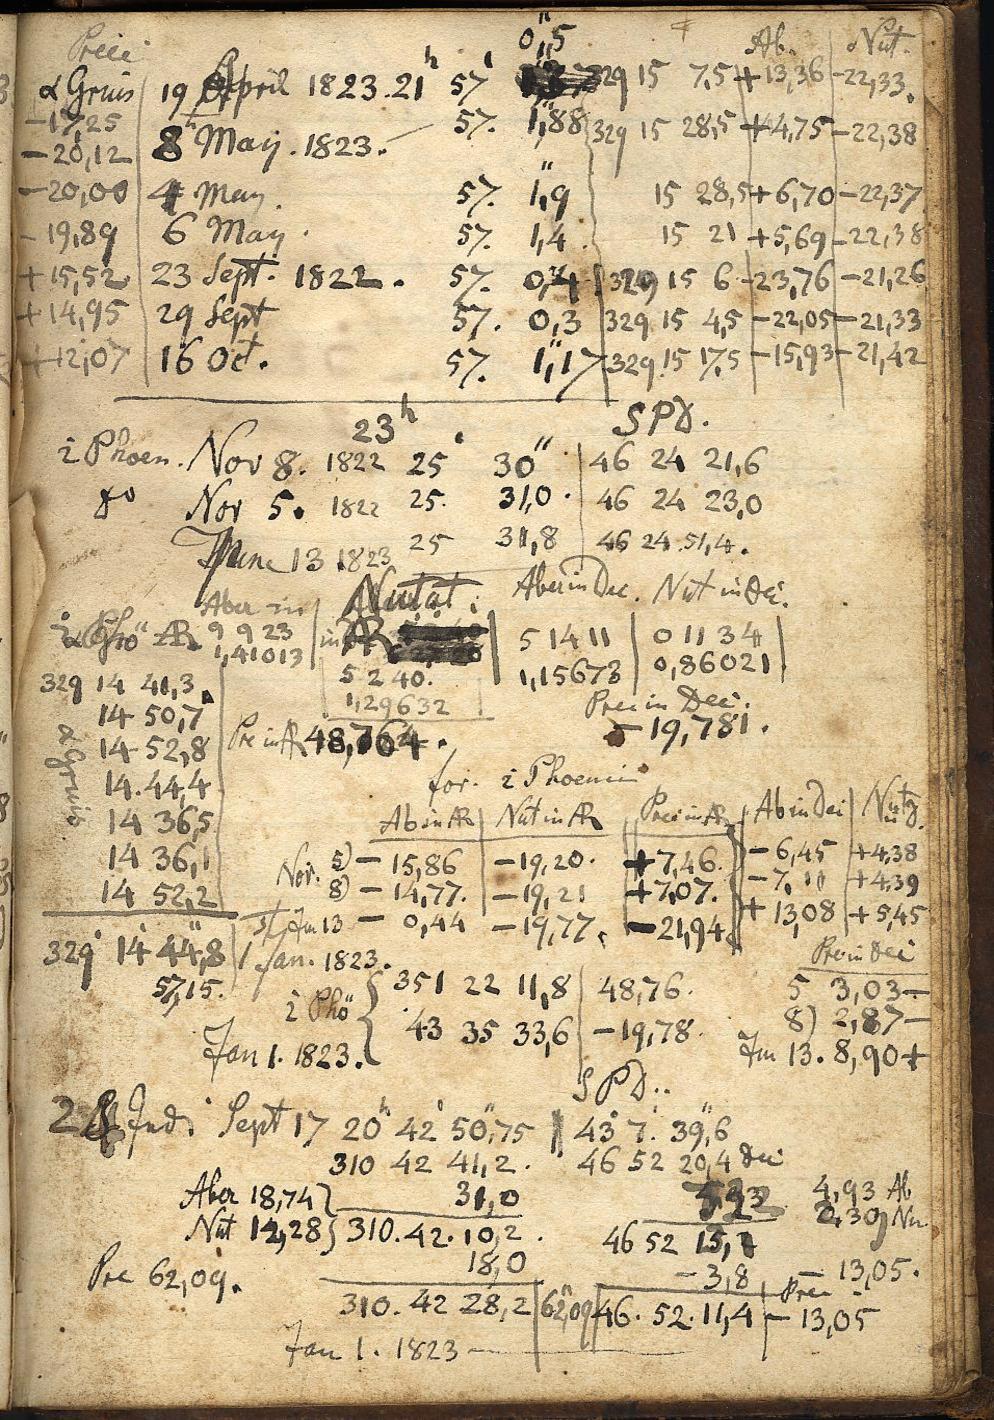 0",5
Prec Ab. Nut.
α Gruis 19 April 1823. 21h 57' 329 15 7,5 +13,36 -22,33.
-17,25
-20,12 8 May. 1823. 57. 1",88 329 15 28,5 +4,75 -22,38
-20,00 4 May. 57. 1",9 15 28,5 +6,70 -22,37
-19,89 6 May. 57. 1,4. 15 21 +5,69 -22,38
+15,52 23 Sept. 1822. 57. 0,4 329 15 6 -23,76 -21,26
+14,95 29 Sept 57. 0,3 329 15 4,5 -22,05 -21,33
+12,07 16 Oct. 57. 1",17 329. 15 17,5 -15,93 -21,42
23h SPD.
i Phoen. Nov 8. 1822 25' 30" 46 24 21,6
do Nov 5. 1822 25. 31,0. 46 24 23,0
June 13 1823 25 31,8 46 24 51,4.
Aber in Nutat: Aber in Dec. Nut in Dec.
i Phö AR 9 9 23 in AR 5 14 11 0 11 34
1,41013 1,15673 0,86021
329 14 41,3. 5 2 40.
14 50,7 1,29632 Prec in Dec.
α Gruis 14 52,8 Prec in AR 48,764. -19,781.
14. 44,4 for. i Phoenicis
14 36,5 Ab in AR Nut in AR Prec in AR Ab in Dec Nut D.
14 36,1 Nov. 5) - 15,86 -19,20. +7,46. -6,45 +4,38
14 52,2 8) - 14,77. -19,21 +7,07. +4,39
Jun 13 - 0,44 -19,77. -21,94 +13,08 +5,45
329° 14' 44",8 1 Jan. 1823. Prec in Dec
57,15. i Phö 351 22 11,8 48,76. 5 3,03-
43 35 33,6 -19,78. 8) 2,87-
Jan 1. 1823. Jun 13. 8,90+
SPD..
2 Ind. Sept 17 20h 42' 50",75 43° 7' 39",6
310 42 41,2. 46 52 20,4 Dec
Aber 18,74 31,0 4,93 Ab
Nut 12,28 310. 42. 10,2. 46 52 15,1 Nu
Prec 62,09. 18,0 -3,8 -13,05.
310. 42 28,2 62,09 46. 52. 11,4 Prec -13,05
Jan 1. 1823